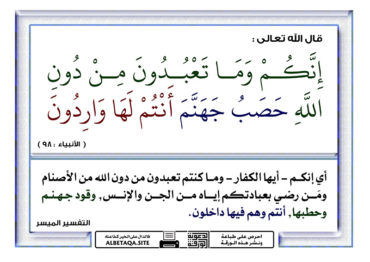 قال الله تعالى :
إِنَّكُمْ وَمَا تَعْبُدُونَ مِنْ دُونِ
اللَّهِ حَصَبُ جَهَنَّمَ أَنْتُمْ لَهَا وَارِدُونَ
( الأنبياء : ٩٨ )
أي إنكم - أيها الكفار - وما كنتم تعبدون من دون الله من الأصنام
ومَن رضي بعبادتكم إياه من الجن والإنس, وقود جهنم
وحطبها, أنتم وهم فيها داخلون.
التفسير الميسر
احرص على طباعة
ونشر هذه الورقة
فالدال على الخير كفاعله
ALBETAQA.SITE